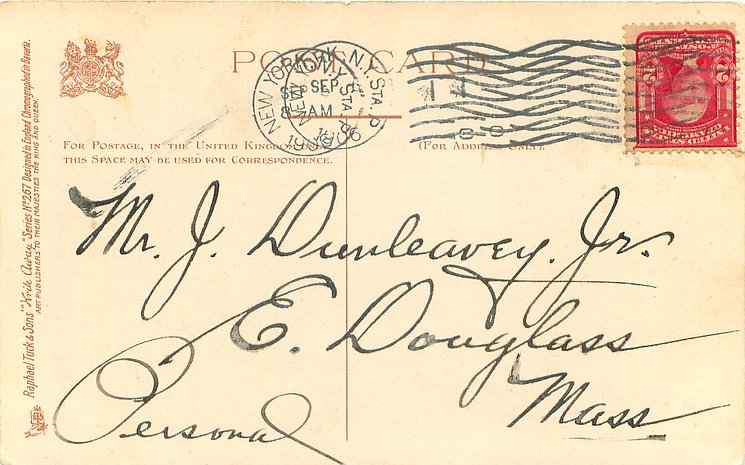 POST CARD
NEW YORK, N.Y. STA. P
SEP
8- AM
1906
FOR POSTAGE, IN THE UNITED KINGDOM ONLY,
THIS SPACE MAY BE USED FOR CORRESPONDENCE.
(FOR ADDRESS ONLY)
Mr. J. Dunleavey. Jr.
E. Douglass
Mass
Personal
Raphael Tuck & Sons' "Write Away" Series Nº 267. Designed in England Chromographed in Bavaria.
ART PUBLISHERS TO THEIR MAJESTIES THE KING AND QUEEN.